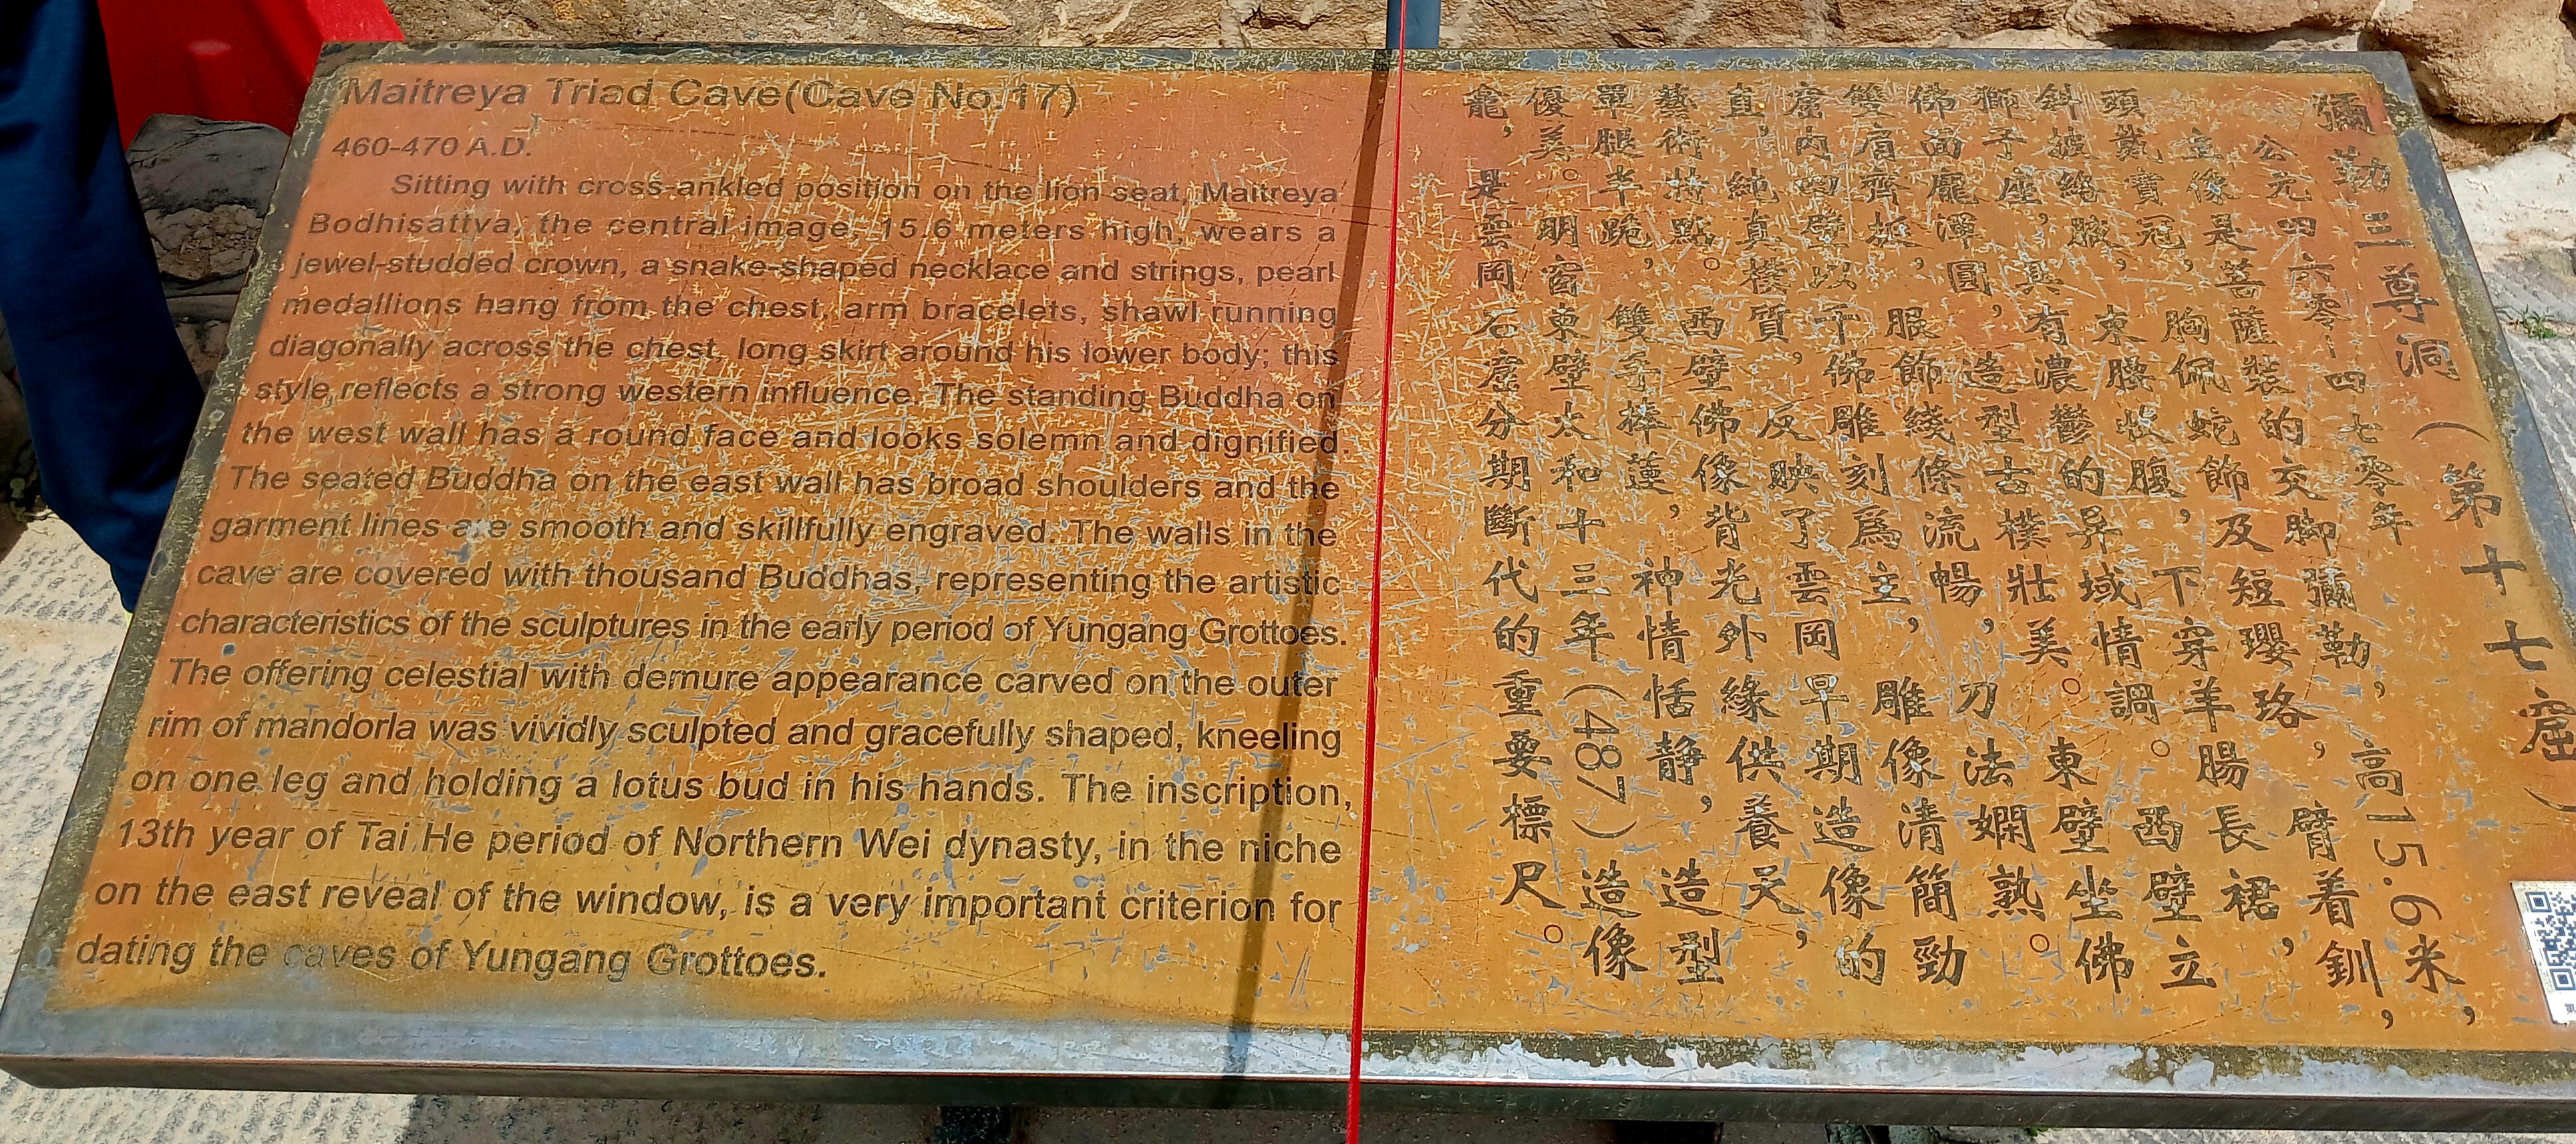 Maitreya Triad Cave(Cave No.17)
460-470 A.D.
Sitting with cross-ankled position on the lion seat, Maitreya
Bodhisattva, the central image, 15.6 meters high, wears a
jewel-studded crown, a snake-shaped necklace and strings, pearl
medallions hang from the chest, arm bracelets, shawl running
diagonally across the chest, long skirt around his lower body; this
style reflects a strong western influence. The standing Buddha on
the west wall has a round face and looks solemn and dignified.
The seated Buddha on the east wall has broad shoulders and the
garment lines are smooth and skillfully engraved. The walls in the
cave are covered with thousand Buddhas, representing the artistic
characteristics of the sculptures in the early period of Yungang Grottoes.
The offering celestial with demure appearance carved on the outer
rim of mandorla was vividly sculpted and gracefully shaped, kneeling
on one leg and holding a lotus bud in his hands. The inscription,
13th year of Tai He period of Northern Wei dynasty, in the niche
on the east reveal of the window, is a very important criterion for
dating the caves of Yungang Grottoes.
彌勒三尊洞(第十七窟)
公元四六零-四七零年
主像是菩薩裝的交脚彌勒,高15.6米,
頭戴寶冠,胸佩蛇飾及短瓔珞,臂着釧,
斜披絡腋,束腰收腹,下穿羊腸長裙,
獅子座,具有濃鬱的异域情調。西壁立
佛面龐渾圓,造型古樸壯美。東壁坐佛
雙肩齊挺,服飾綫條流暢,刀法嫻熟。
窟内四壁以千佛雕刻爲主,雕像清簡勁
直,純真樸質,反映了雲岡早期造像的
藝術特點。西壁佛像背光外緣供養天,
單腿半跪,雙手捧蓮,神情恬静,造型
優美。明窗東壁太和十三年(487)造像
龕,是雲岡石窟分期斷代的重要標尺。